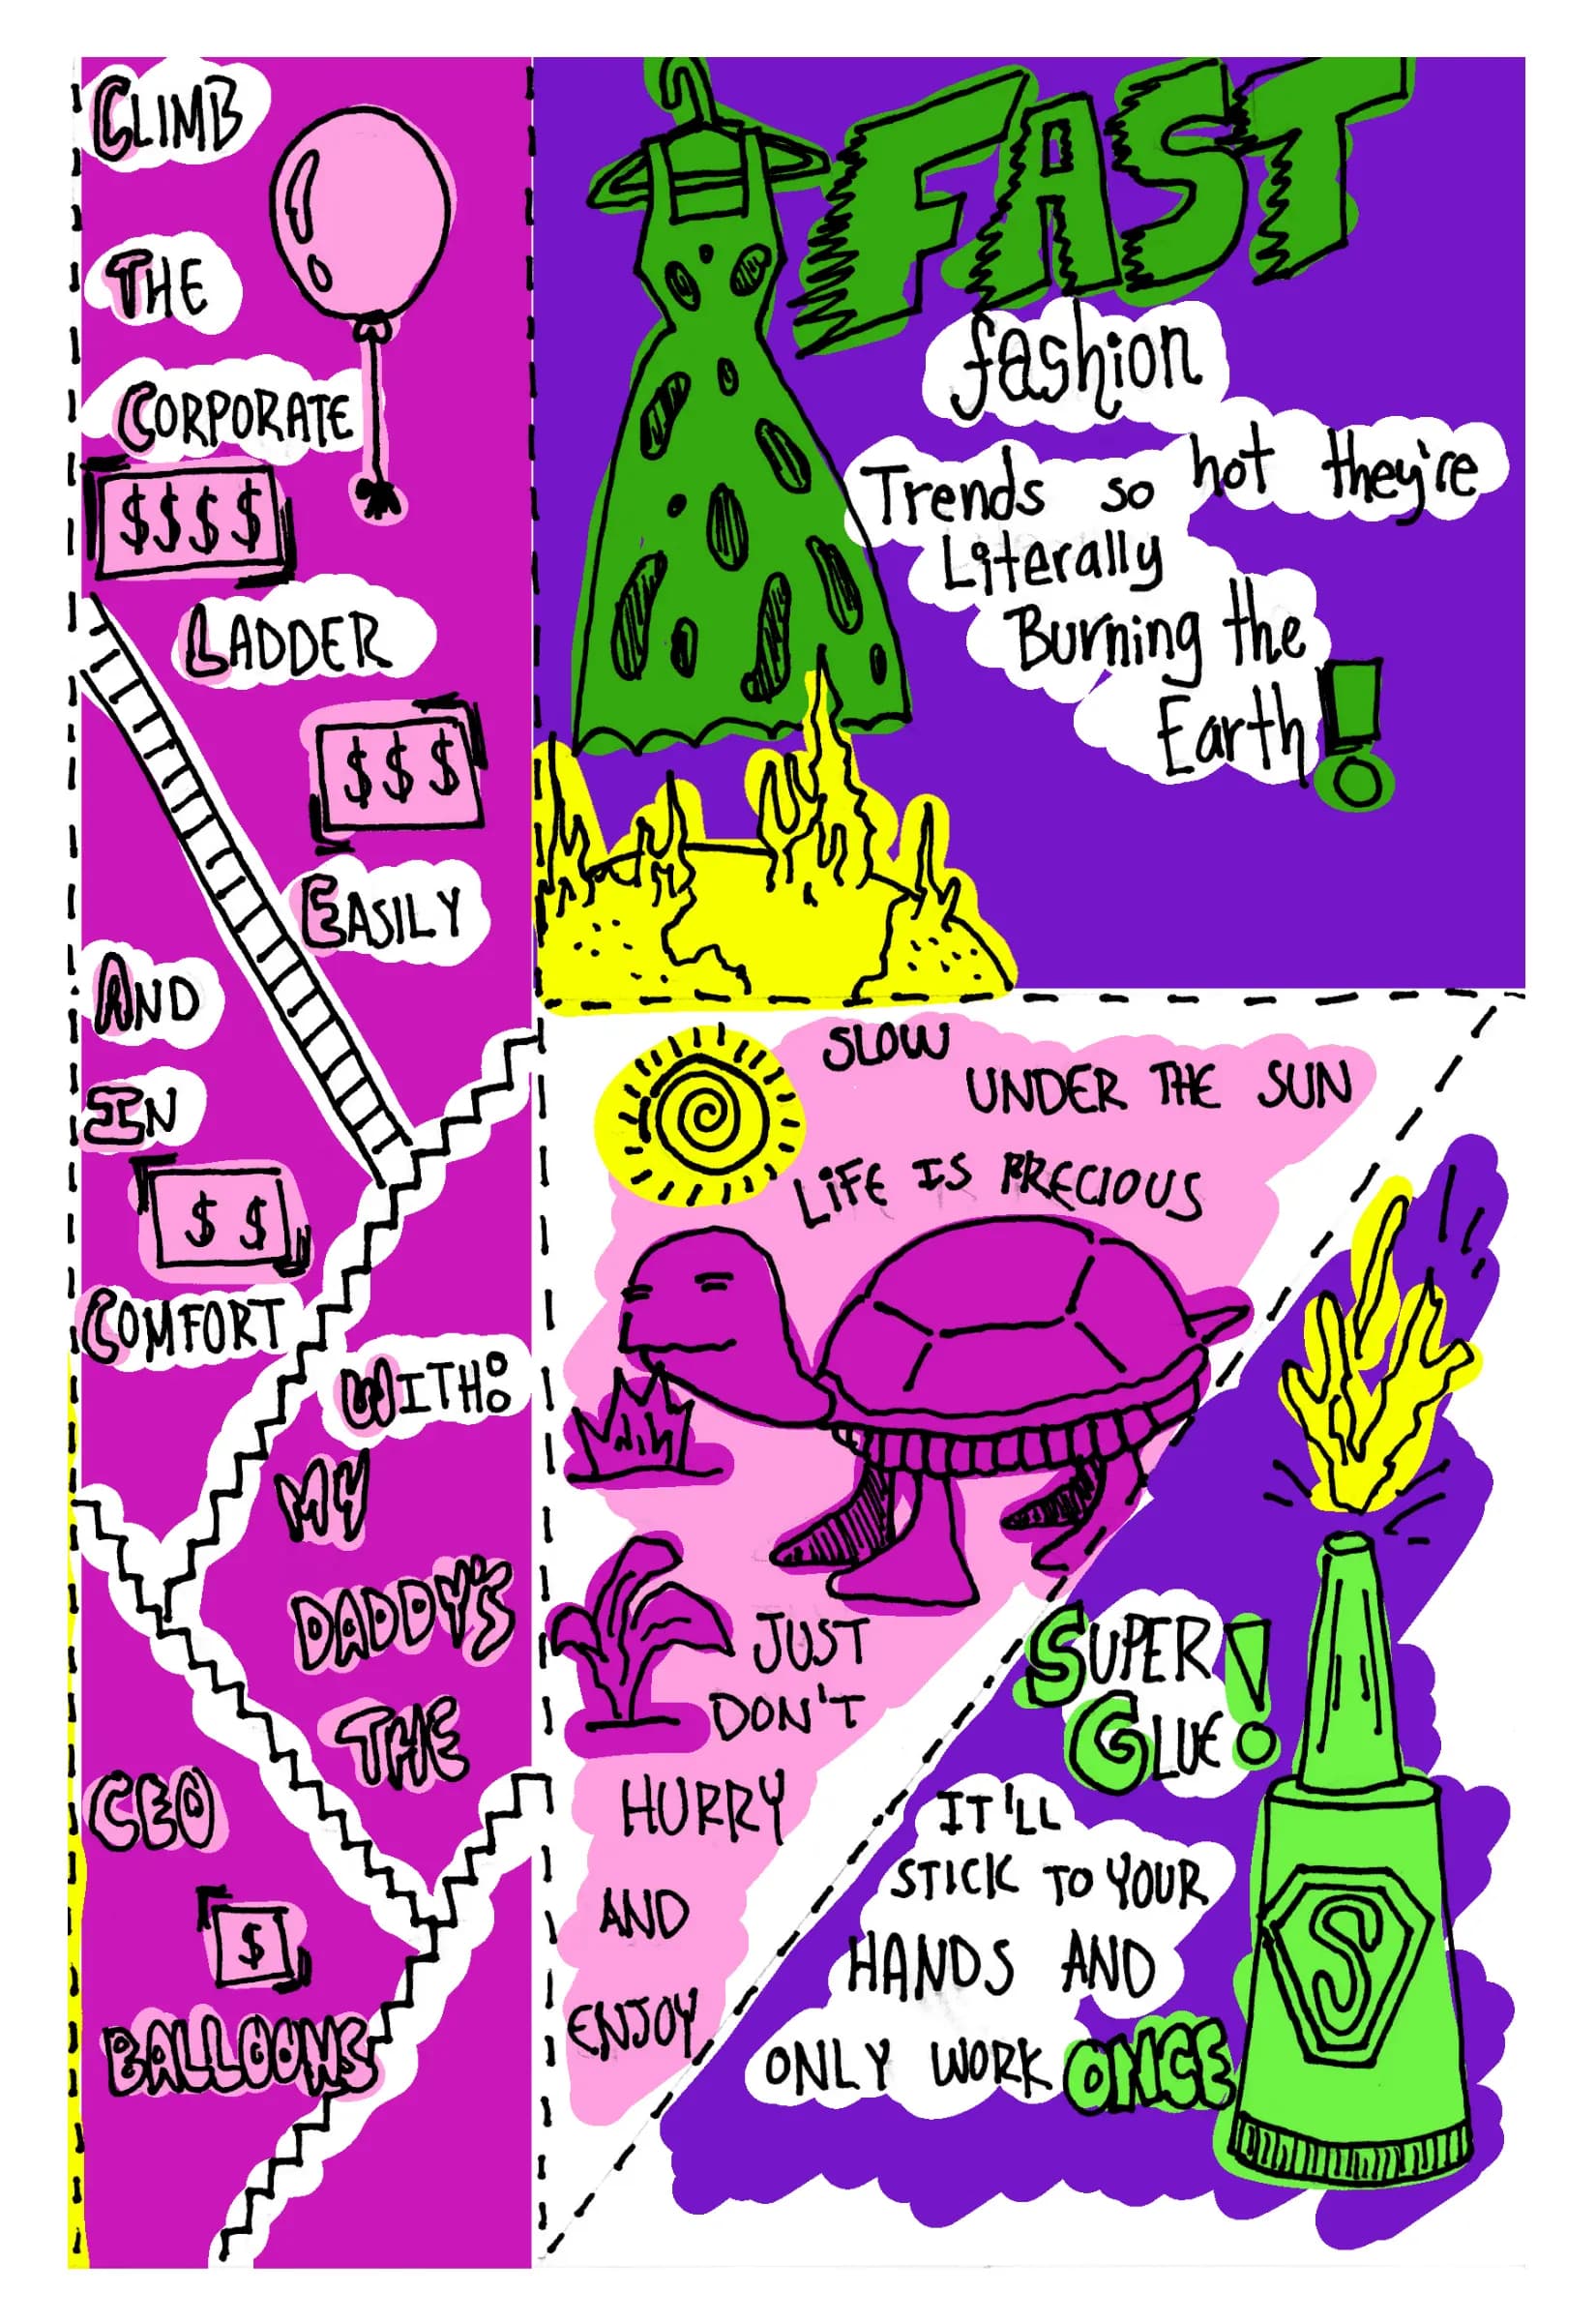 CLIMB
THE
CORPORATE
$$$$
LADDER
$$$
EASILY
AND
IN
$$
COMFORT
WITH:
MY
DADDY'S
THE
CEO
$
BALLOONS
FAST
fashion
Trends so hot they're
Literally
Burning the
Earth!
SLOW
UNDER THE SUN
LIFE IS PRECIOUS
JUST
DON'T
HURRY
AND
ENJOY
SUPER
GLUE!
IT'LL
STICK TO YOUR
HANDS AND
ONLY WORK ONCE
S